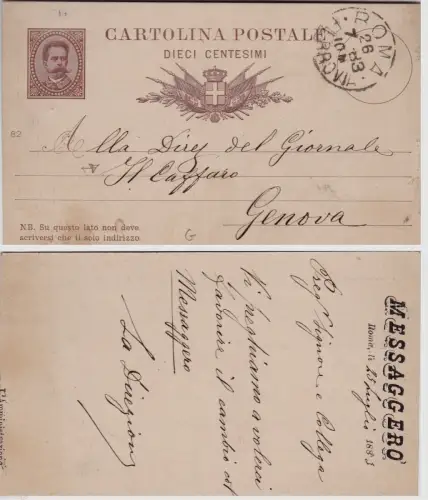 CARTOLINA POSTALE
DIECI CENTESIMI
ROMA
26
7 83
FERROVIA
82
Alla Direz del Giornale
Il Caffaro
Genova
N.B. Su questo lato non deve
scriversi che il solo indirizzo
G
MESSAGGERO
Roma, li 25 luglio 1883
Preg Signore e Collega
Vi preghiamo a volerci
favorire il cambio col
Messaggero
La Direzione